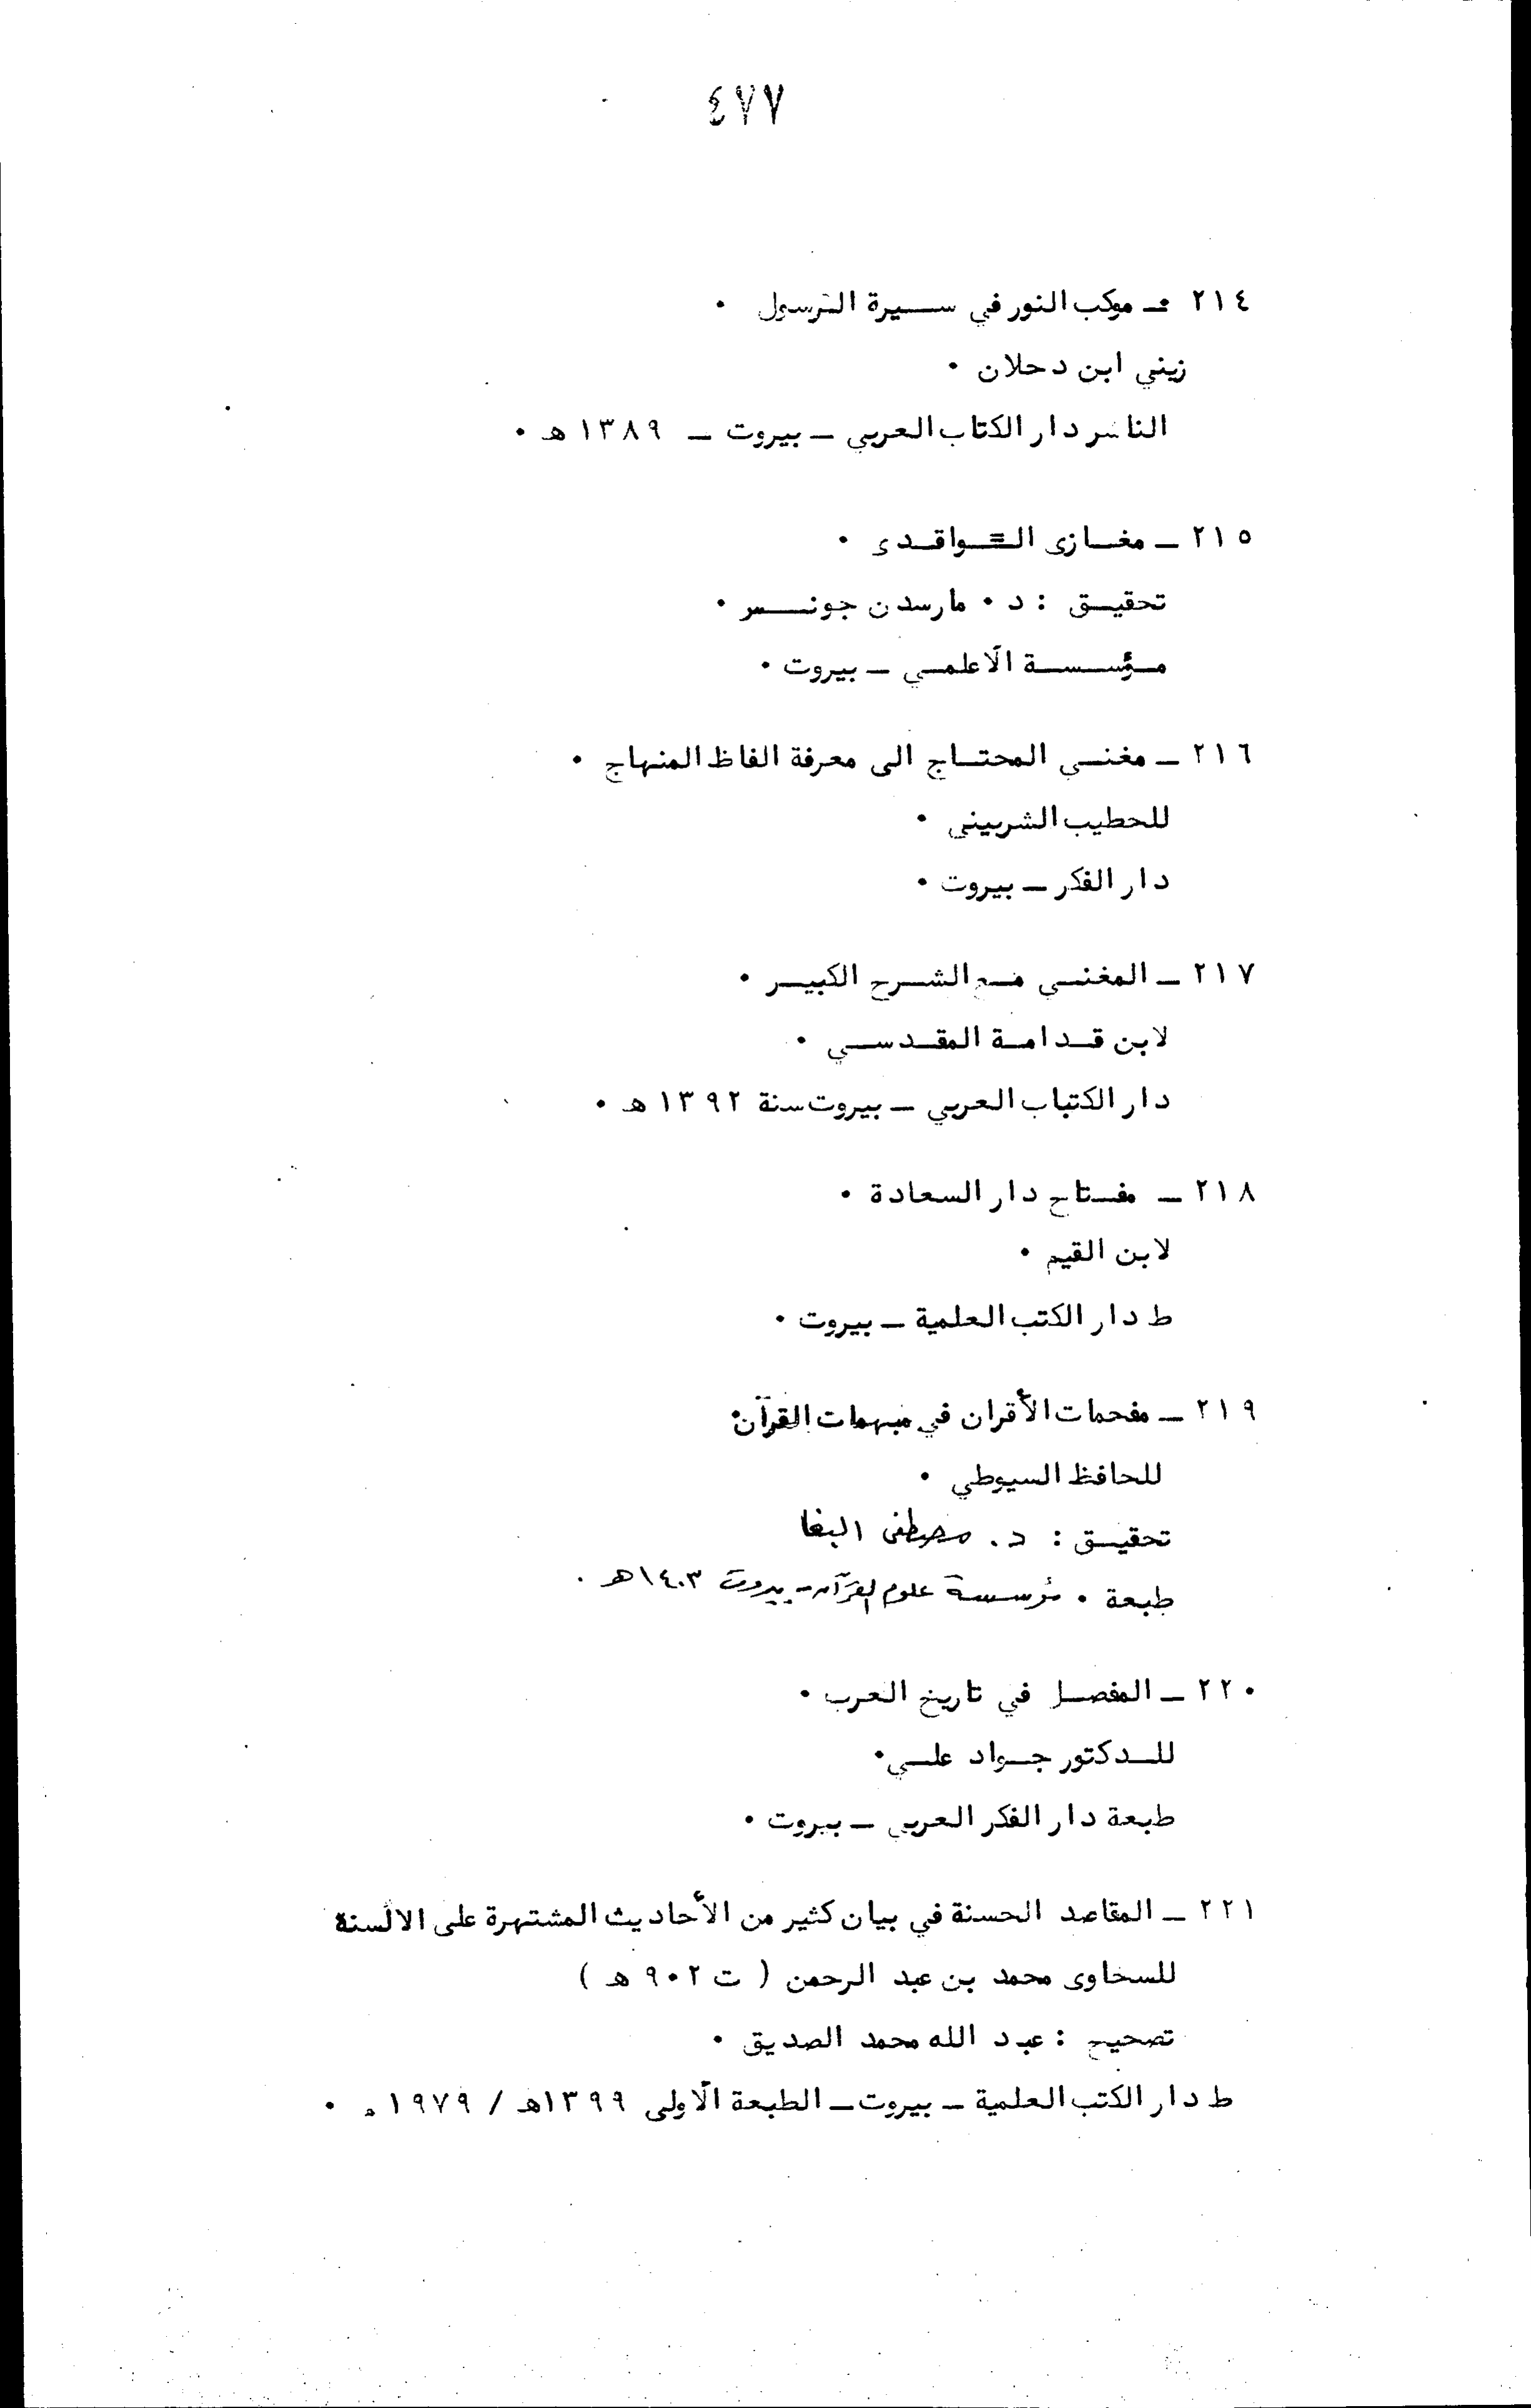 ٤٧٧
٢١٤ ـ موكب النور في سيرة الرسول ٠
زيني ابن دحلان ٠
الناشر دار الكتاب العربي ـ بيروت ـ ١٣٨٩ هـ ٠
٢١٥ ـ مغازى الواقدى ٠
تحقيق : د ٠ مارسدن جونس ٠
مؤسسة الأعلمي ـ بيروت ٠
٢١٦ ـ مغني المحتاج الى معرفة الفاظ المنهاج ٠
للخطيب الشربيني ٠
دار الفكر ـ بيروت ٠
٢١٧ ـ المغني مع الشرح الكبير ٠
لابن قدامة المقدسي ٠
دار الكتاب العربي ـ بيروت سنة ١٣٩٢ هـ ٠
٢١٨ ـ مفتاح دار السعادة ٠
لابن القيم ٠
ط دار الكتب العلمية ـ بيروت ٠
٢١٩ ـ مفحمات الأقران في مبهمات القرآن ٠
للحافظ السيوطي ٠
تحقيق : د . مصطفى البغا
طبعة ٠ مؤسسة علوم القرآن ـ بيروت ١٤٠٣هـ .
٢٢٠ ـ المفصل في تاريخ العرب ٠
للدكتور جواد علي ٠
طبعة دار الفكر العربي ـ بيروت ٠
٢٢١ ـ المقاصد الحسنة في بيان كثير من الأحاديث المشتهرة على الالسنة
للسخاوى محمد بن عبد الرحمن ( ت ٩٠٢ هـ )
تصحيح : عبد الله محمد الصديق ٠
ط دار الكتب العلمية ـ بيروت ـ الطبعة الأولى ١٣٩٩هـ / ١٩٧٩م ٠